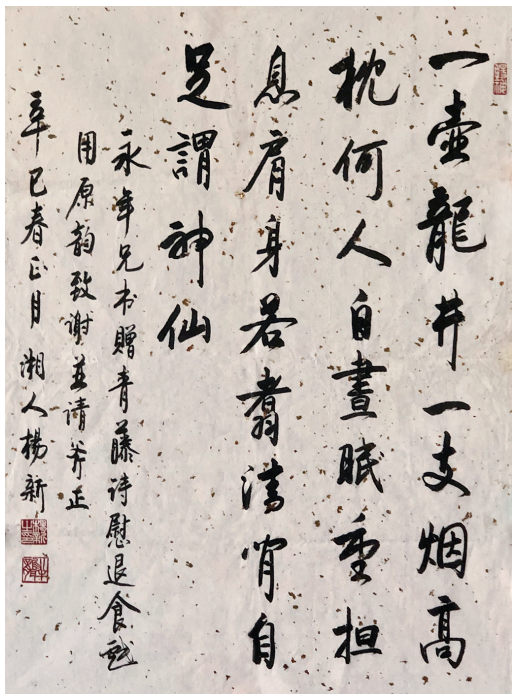 一壺龍井一支烟高
枕何人白晝眠重担
息肩身若翥清閒自
足謂神仙
永年兄书贈青藤诗慰退食戏
用原韵致谢並请斧正
辛巳春正月湘人楊新